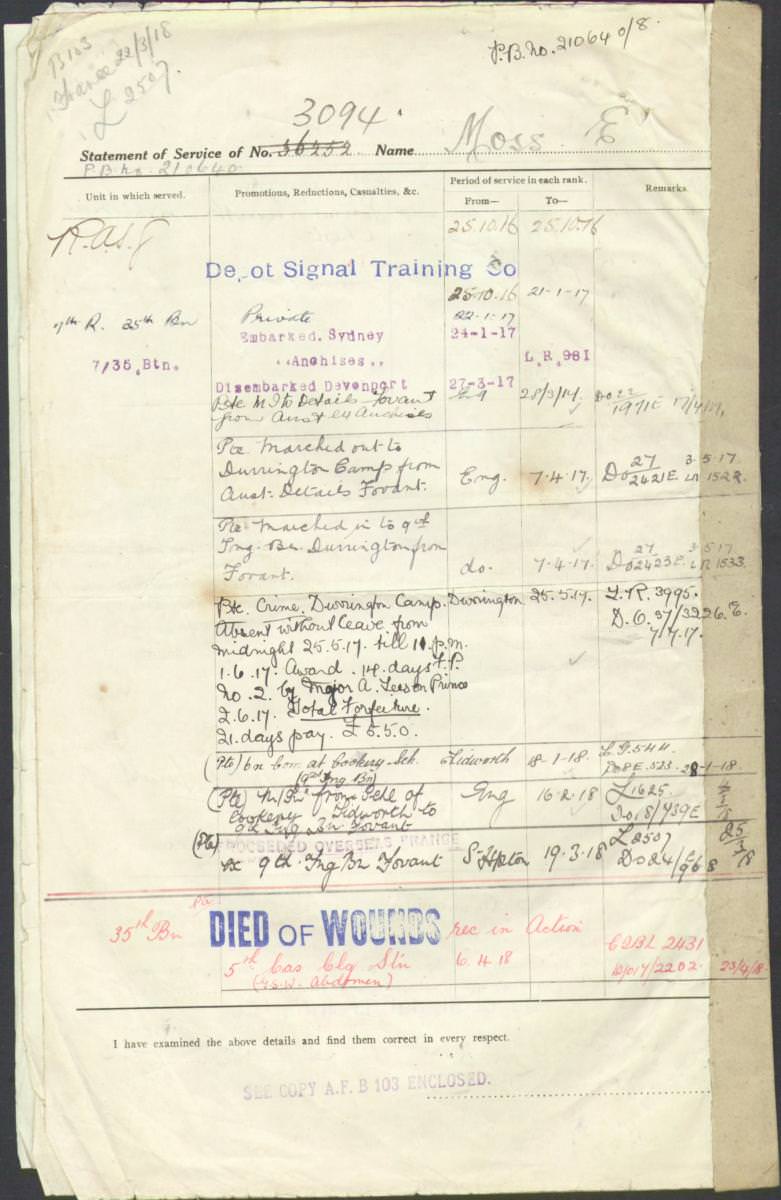 B103
France 22/3/18
L 2507.
P.B. No. 21064 0/8.
3094.
Statement of Service of No. 36252 Name Moss E
P.B. No. 210640
Unit in which served.
Promotions, Reductions, Casualties, &c.
Period of service in each rank.
From—
To—
Remarks.
25.10.16 25.10.16
Depot Signal Training Co
25.10.16 21-1-17
7th R. 35th Bn Private 22-1-17
Embarked. Sydney 24-1-17
7/35. Btn. "Anchises" L.R. 981
Disembarked Devonport 27-3-17
Pte M I to Details Fovant 28/3/17.
from Aust ex Anchises 1971E 17/4/17
Pte Marched out to
Durrington Camp from Eng. 7.4.17. DO 27/2421E 3.5.17 LR 1522.
Aust. Details Fovant.
Pte Marched in to 9th
Tng. Bn. Durrington from do. 7.4.17. DO 27/2423E 3.5.17 LR 1533.
Fovant.
Pte. Crime. Durrington Camp. Durrington 25.5.17. L.R. 3995.
Absent without leave from D.O. 37/3226.E.
midnight 25.5.17. till 11 p.m. 7.7.17.
1.6.17. Award. 14 days F.P.
No. 2. by Major A. Leeson Prince
2.6.17. Total Forfeiture.
21. days pay. £5.5.0.
(Pte) on Com. at Cookery Sch. Tidworth 18-1-18. L.G.544
(9th Tng Bn) DO 8E.523. 28-1-18.
(Pte) M/In from Schl of Eng 16.2.18 L1625.
Cookery Tidworth to Do 18/739E
9th Tng Bn Fovant
(Pte) PROCEEDED OVERSEAS FRANCE L2507 25/3/18
ex 9th Tng Bn Fovant S. Hpton 19.3.18 Do 24/968
Pte
35th Bn DIED OF WOUNDS rec in Action
5th Cas Clg Stn 6.4.18 C2BL 2431
(G.S.W. Abdomen) 2202. 23/4/18.
I have examined the above details and find them correct in every respect.
SEE COPY A.F. B 103 ENCLOSED.